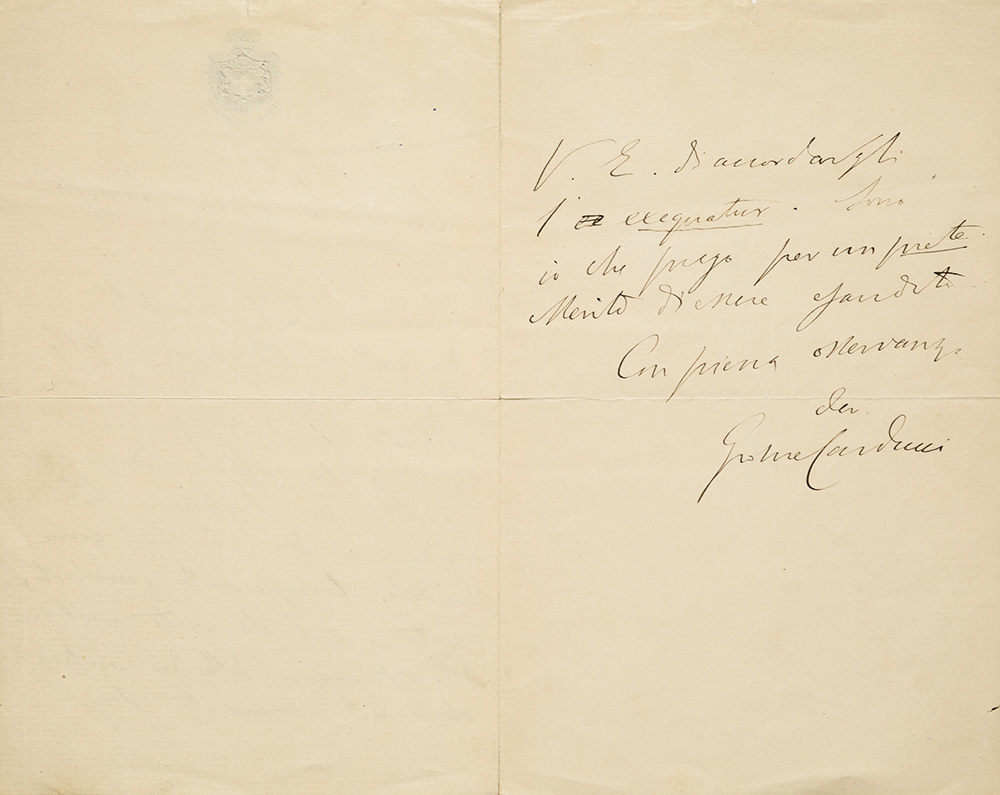 V. E. di accordargli
l' exequatur. Sono
io che prego per un prete.
Merito di essere esaudito.
Con piena osservanza
dev.
Giosue Carducci